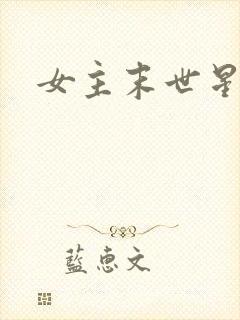 女主末世星
藍惠文